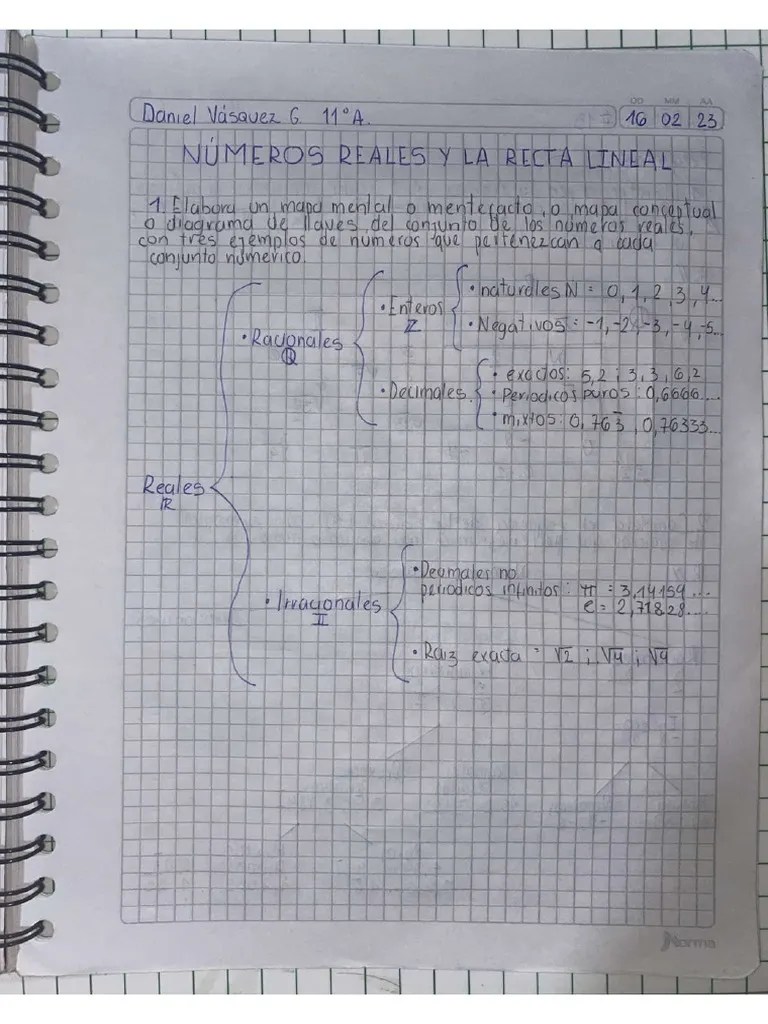 Daniel Vásquez G. 11°A.
DD MM AA
16 02 23
NÚMEROS REALES Y LA RECTA LINEAL
1. Elabora un mapa mental o mentefacto, o mapa conceptual
o diagrama de llaves, del conjunto de los números reales,
con tres ejemplos de numeros que pertenezcan a cada
conjunto númerico.
Reales
ℝ
• Racionales
ℚ
• Enteros
ℤ
• naturales N = 0, 1, 2, 3, 4...
• Negativos = -1, -2, -3, -4, -5...
• Decimales
• exactos: 5,2 ; 3,3, 6,2
• Periodicos puros : 0,6666...
• mixtos: 0,763̄, 0,76333...
• Irracionales
𝕀
• Decimales no
periodicos infinitos: π = 3,14159...
e = 2,71828...
• Raiz exacta = √2 ; √4 ; √9
Norma